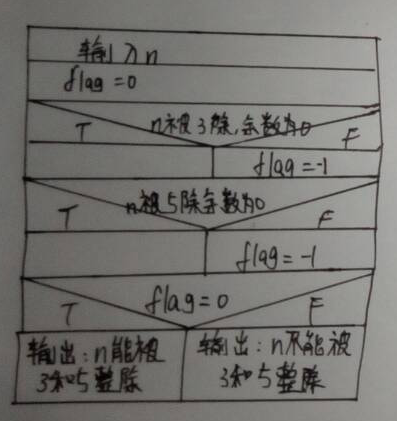 输入n
flag=0
n被3除,余数为0
T
F
flag=-1
n被5除余数为0
T
F
flag=-1
flag=0
T
F
输出:n能被
3和5整除
输出:n不能被
3和5整除